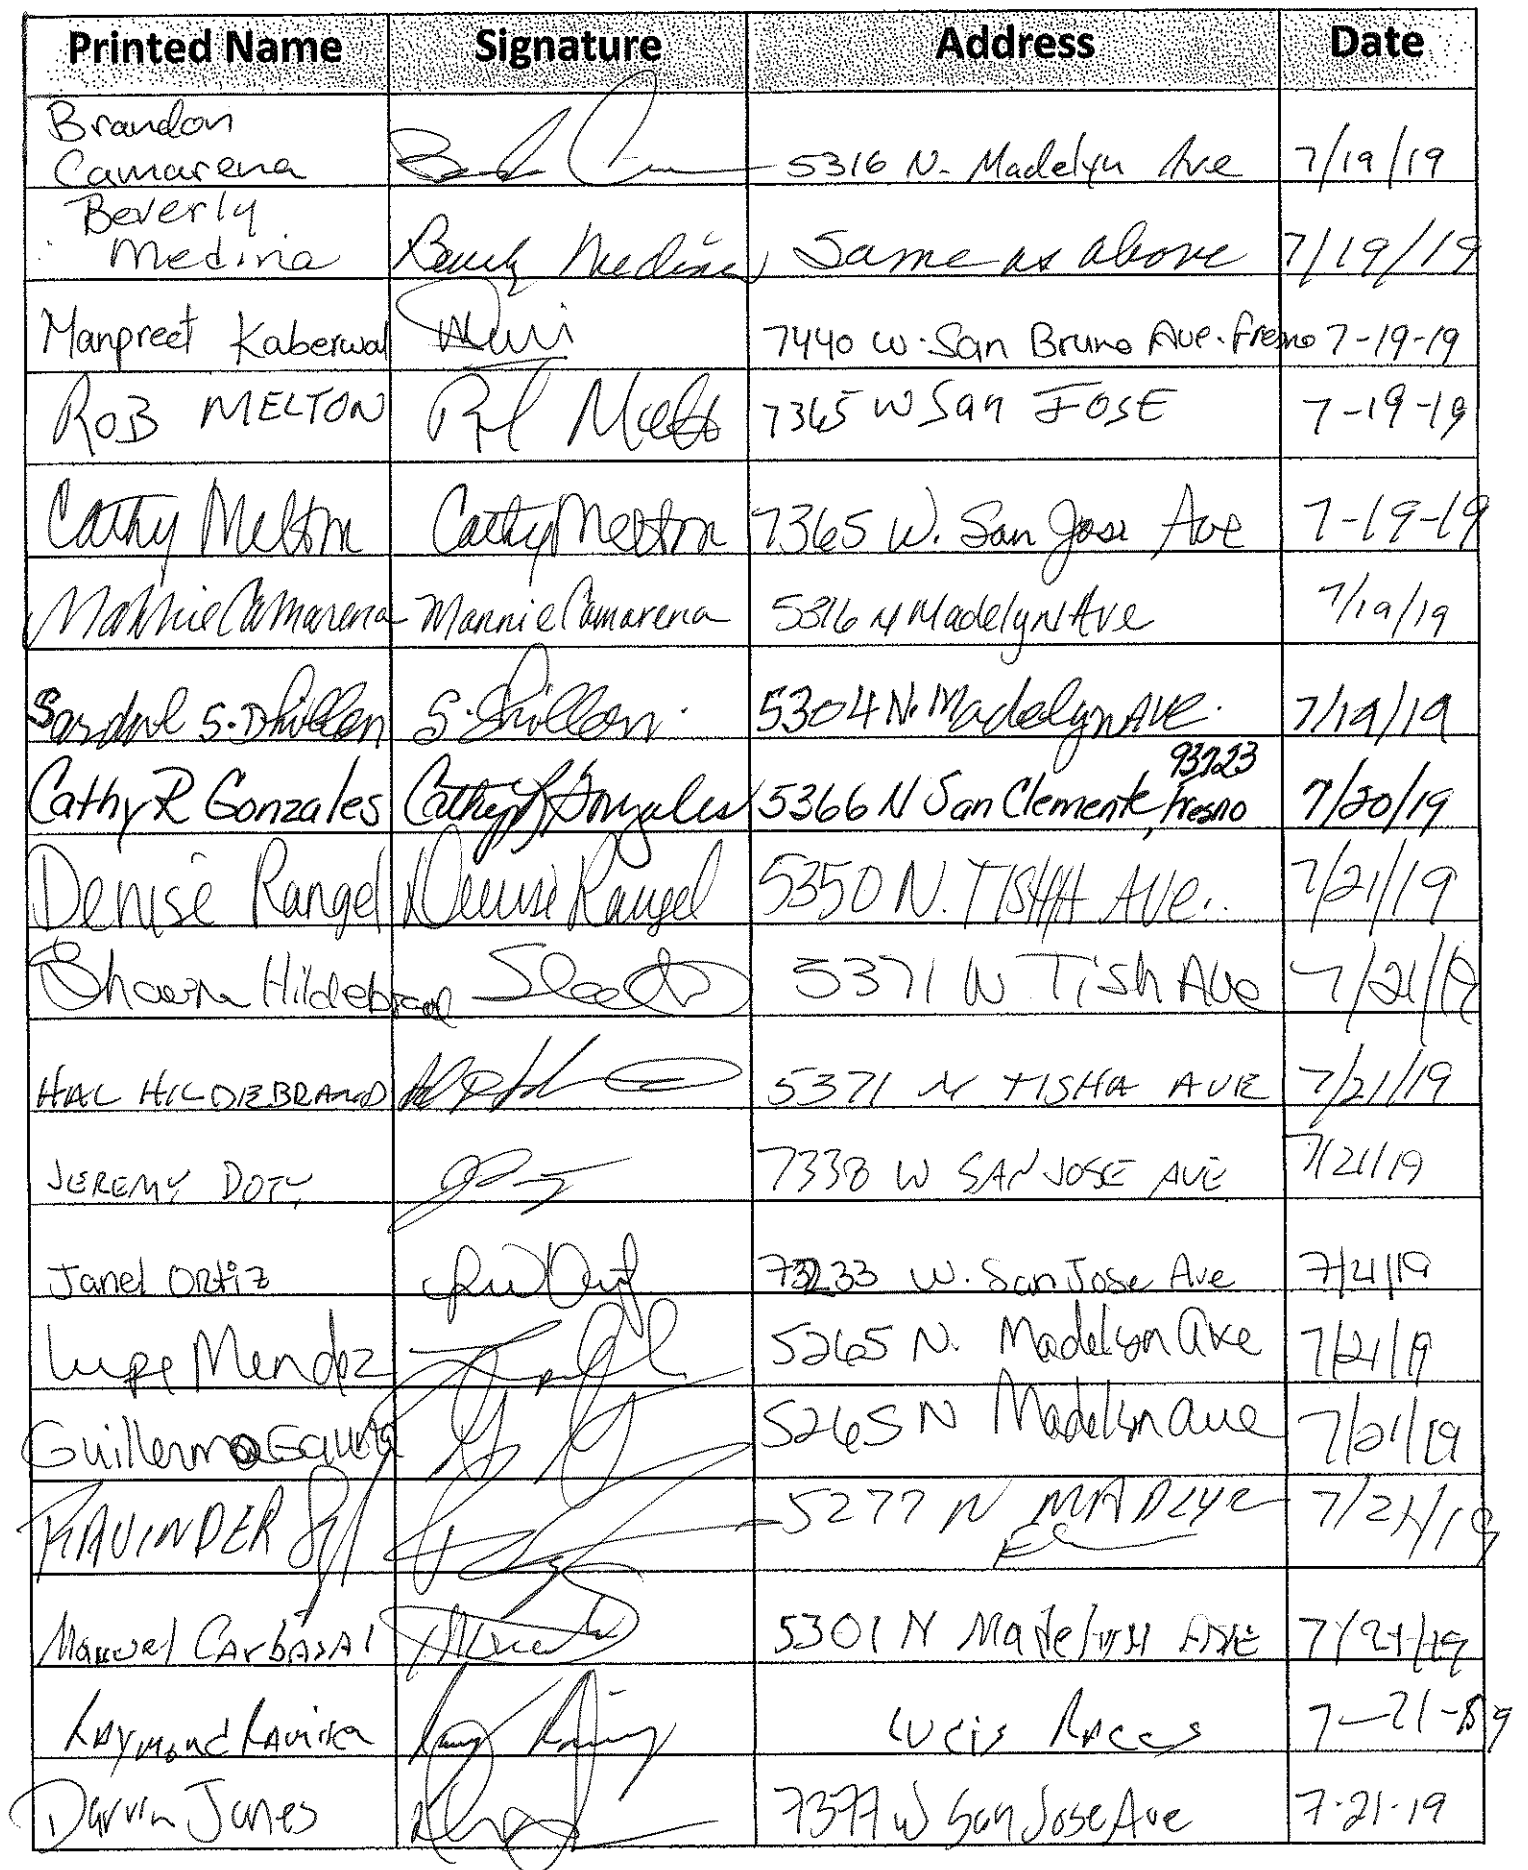 Printed Name Signature Address Date
Brandon
Camarena 5316 N. Madelyn Ave 7/19/19
Beverly
Medina Beverly Medina Same as above 7/19/19
Manpreet Kaberwal 7440 W. San Bruno Ave. Fresno 7-19-19
ROB MELTON 7365 W San JOSE 7-19-19
Cathy Melton Cathy Melton 7365 W. San Jose Ave 7-19-19
Mannie Camarena Mannie Camarena 5316 N Madelyn Ave 7/19/19
S. Dhillon S. Dhillon 5304 N. Madelyn AVE. 7/19/19
93723
Cathy R Gonzales Cathy R Gonzales 5366 N San Clemente, Fresno 7/20/19
Denise Rangel Denise Rangel 5350 N. TISHA AVE.. 7/21/19
Hildebrand 5371 N Tish Ave 7/21/19
HAL HILDEBRAND 5371 N TISHA AVE 7/21/19
JEREMY DOTY 7338 W SAN JOSE AVE 7/21/19
Janel Ortiz W. San Jose Ave 7/21/19
Lupe Mendoz 5265 N. Madelyn Ave 7/21/19
Guillermo 5265 N Madelyn Ave 7/21/19
RAVINDER 5277 N 7/21/19
Manuel CArbAjAl 5301 N Madelyn AVE 7/21/19
Raymond 7-21-19
Darvin Jones W San Jose Ave 7-21-19